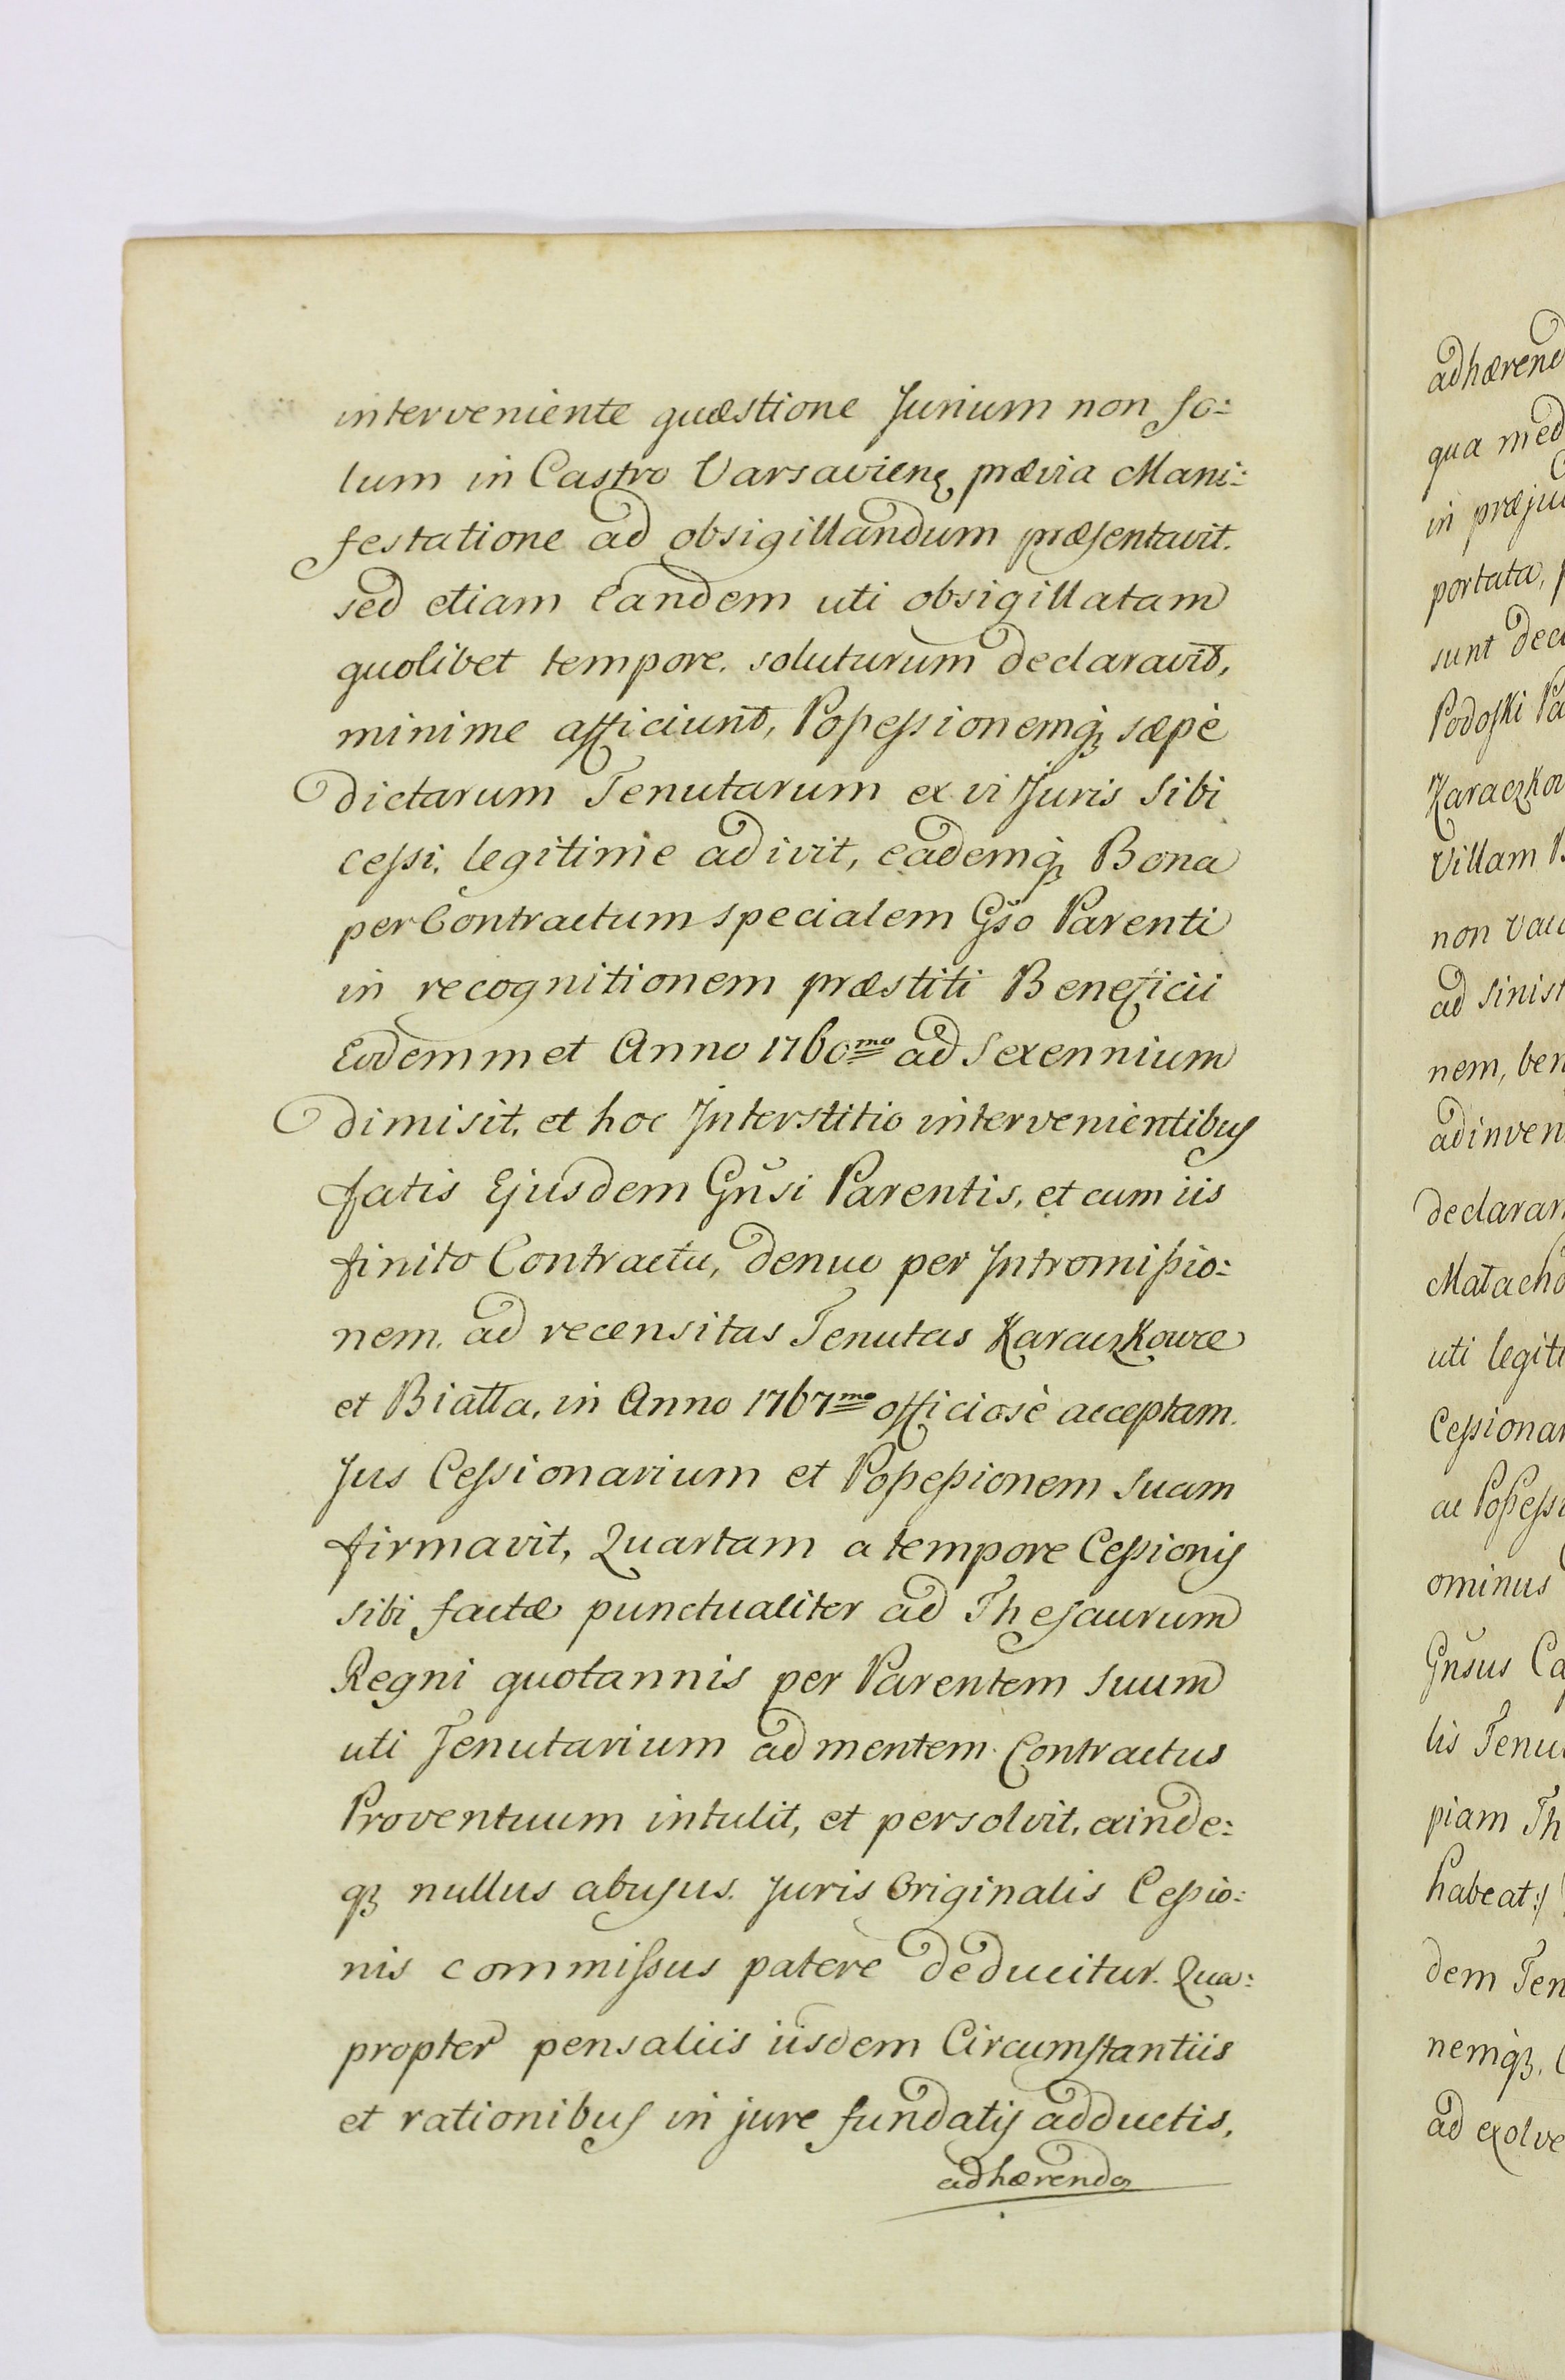 interveniente quæstione Jurium non so:
lum in Castro Varsavienę prævia Mani:
festatione ad obsigillandum præsentavit.
sed etiam Eandem uti obsigillatam
quolibet tempore. soluturum declaravit,
minime afficiunt, Possessionemq₃ sæpè
dictarum Tenutarum ex vi Juris Sibi
cessi, legitime adivit, eademq₃ Bona
per Contractum specialem Gso Parenti
in recognitionem præstiti Beneficii
Eodemmet Anno 1760mo ad Sexennium
dimisit, et hoc Interstitio intervenientibus
fatis Ejusdem Gnsi Parentis, et cum iis
finito Contractu, denuo per Intromissio:
nem. ad recensitas Tenutas Karaczkowce
et Biatta, in Anno 1767mo officiosè acceptam.
Jus Cessionarium et Possessionem suam
firmavit, Quartam a tempore Cessionis
sibi factæ punctualiter ad Thesaurum
Regni quotannis per Parentem suum
uti Tenutarium ad mentem Contractus
Proventuum intulit, et persolvit, exinde:
q₃ nullus abusus. Juris Originalis Cessio:
nis commissus patere deducitur. Qua:
propter pensaliis iisdem Circumstantiis
et rationibus in jure fundatis adductis,
adhærendo
adhærend
qua med
in præju
portata,
sunt dec
Podoski Pa
Karaczkow
Villam B
non vale
ad sinist
nem, ben
adinven
declarar
Matacho
uti legiti
Cessionar
ac Possess
ominus
Gnsus Ca
lis Tenu
piam Th
habeat:/
dem Ten
nemq₃.
ad exolve